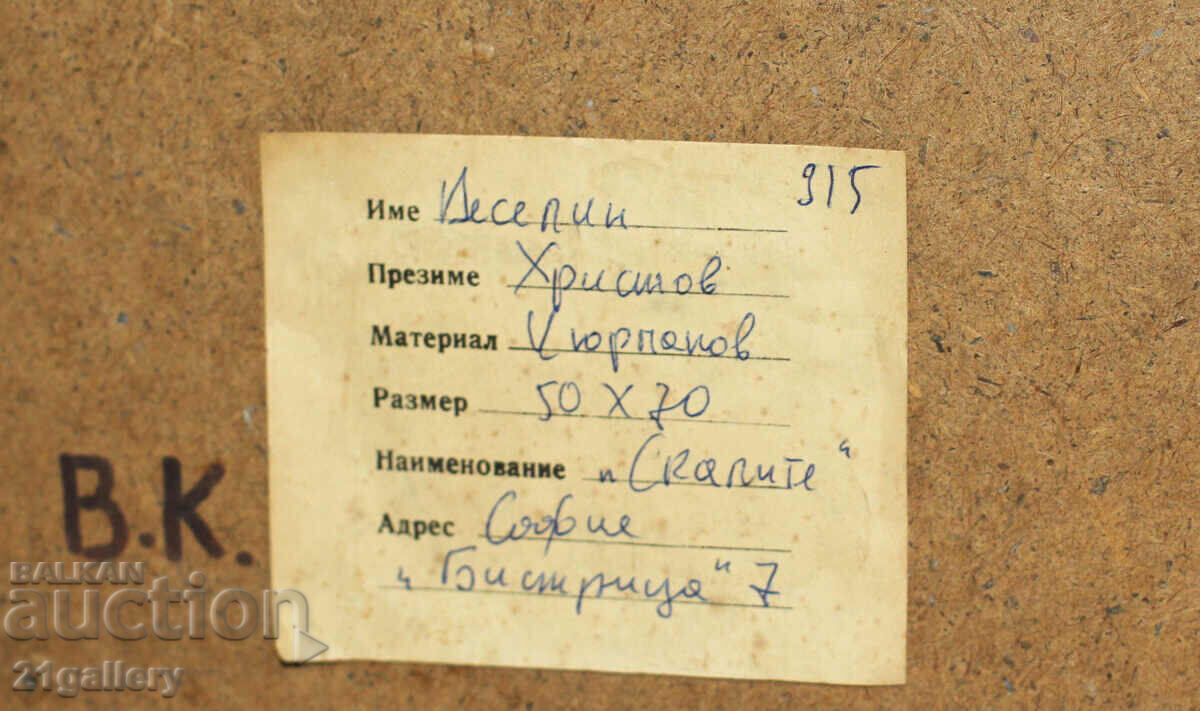 915
Име Веселин
Презиме Христов
Материал Кюрпанов
Размер 50 X 70
Наименование „Скалите“
Адрес София
„Бистрица“ 7
В.К.
BALKAN
auction
21gallery